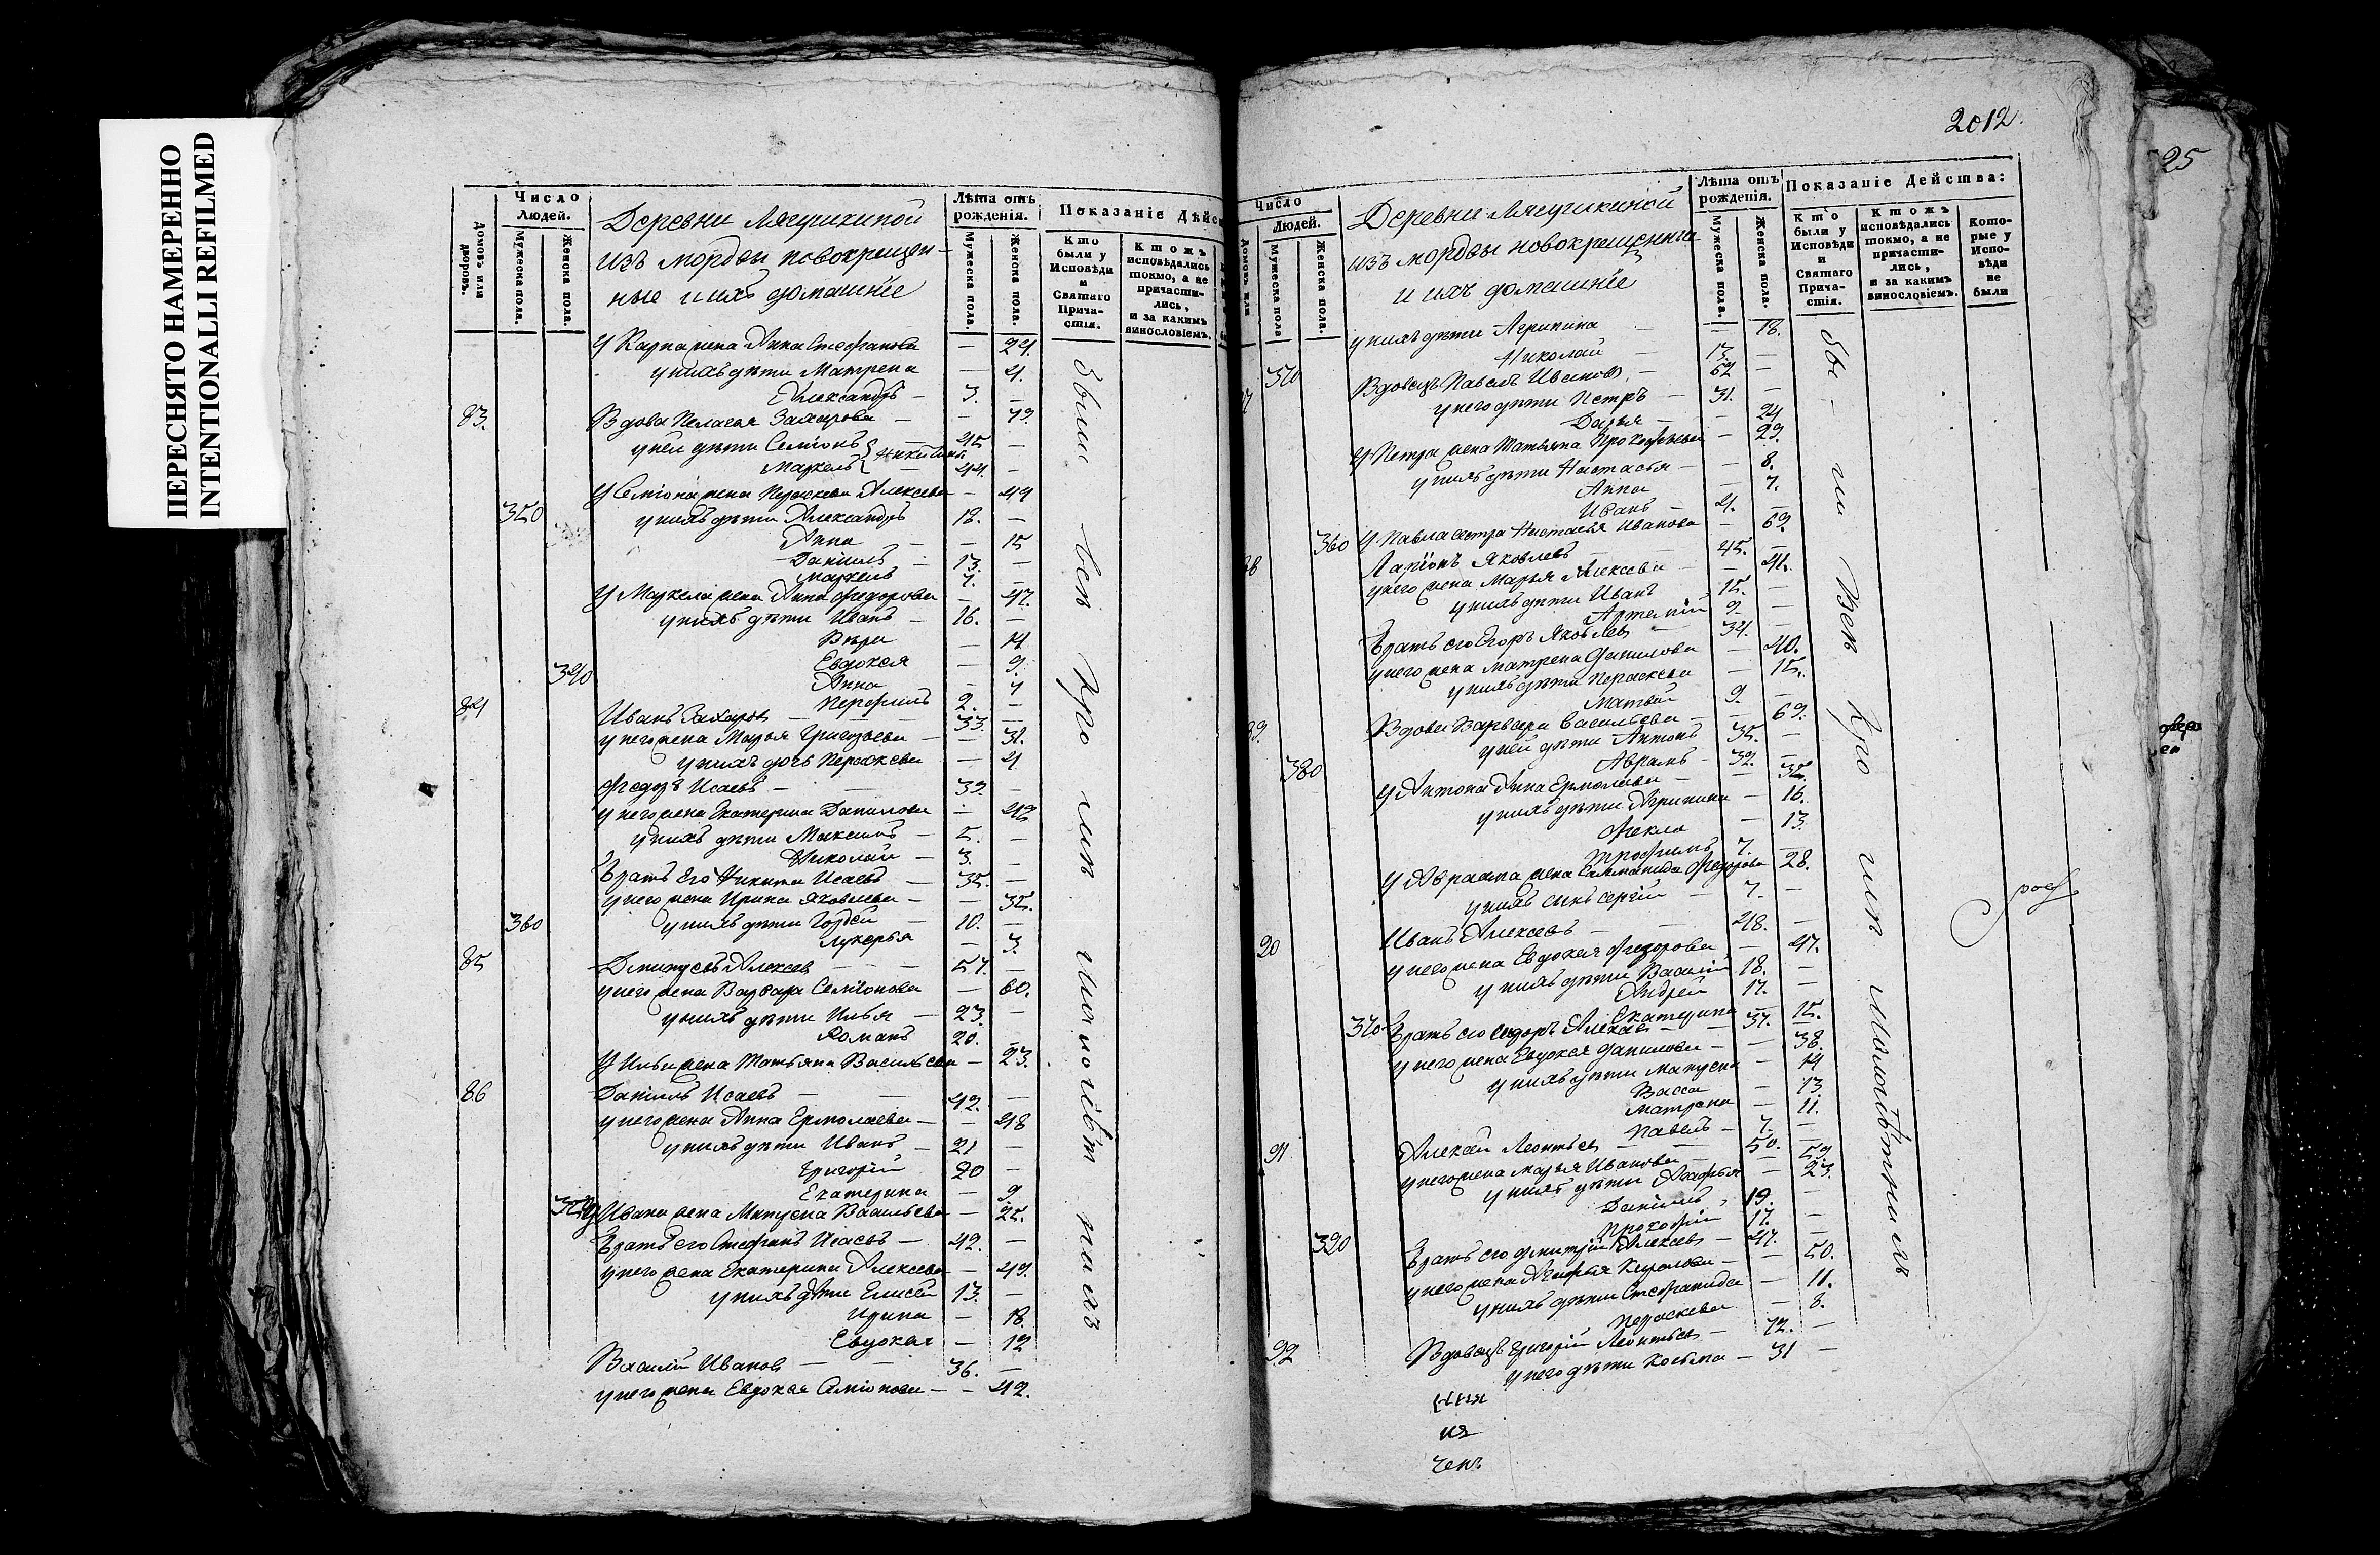 ПЕРЕСНЯТО НАМЕРЕННО
INTENTIONALLI REFILMED
Домовъ или дворовъ.
Число Людей.
Мужеска пола.
Женска пола.
Деревни Лягушкиной
изъ мордвы новокрещен-
ные и ихъ домашніе
Лѣта отъ рожденія.
Мужеска пола.
Женска пола.
Показаніе Дѣйс
Кто были у Исповѣди и Святаго Прича-стія.
Ктожъ исповѣдались токмо, а не причасти-лись, и за какимъ винословіемъ.
У Карпа жена Анна Стефанова — 24.
у нихъ дѣти Матрена — 4.
Александръ — 3. —
83. Вдова Пелагея Захарова — — 73.
у ней дѣти Семіонъ } Никитины 45 —
Маркелъ 44. —
У Семіона жена Пераскева Алексева — 49
350 у нихъ дѣти Александръ 18. —
Анна — 15
Даніилъ 13. —
Маркелъ 7. —
У Маркела жена Анна Федорова — 47.
у нихъ дѣти Иванъ — 16. —
Вѣра — 14
Евдокея — 9.
340 Анна — 4
Перфилъ 2. —
84 Иванъ Захаровъ — 33. —
у него жена Марья Григорьева — — 31.
у нихъ дочь Пераскева — 4
Федоръ Исаевъ — 39. —
у него жена Екатерина Данилова —
у нихъ дѣти Максимъ — 5. —
Николай — 3. —
Братъ Его Никита Исаевъ — 35. —
у него жена Ирина Яковлева — — 35.
360 у нихъ дѣти Гордей — 10. —
Лукерья — 3.
85 Алексев 57. —
у него жена Варвара Семіонова — 60.
у нихъ дѣти Илья — 23. —
Романъ 20. —
У Ильи жена Татьяна Васильева — 23.
86 Даніилъ Исаевъ — — 42. —
у него жена Анна Ермолаева — — 48
у нихъ дѣти Иванъ — 21 —
Григорій 20 —
Екатерина — 9.
У Ивана жена Васильева — 25.
Братъ его Стефанъ Исаевъ — 42. —
у него жена Екатерина Алексева — 49.
у нихъ дѣти Елисей 13. —
Ирина — 18.
Евдокея — 12
Василій Ивановъ — — 36. —
у него жена Евдокея Семіонова — — 42.
были всѣ кро мѣ малолѣт
2012.
25
Число Людей.
Домовъ или
Мужеска пола
Женска пола.
Деревни Лягушкиной
изъ мордвы новокрещенныя
и ихъ домашніе
Лѣта отъ рожденія.
Мужеска пола.
Женска пола.
Показаніе Действа:
Кто были у Исповѣди и Святаго Прича-стія.
Ктожъ исповѣдались токмо, а не причасти-лись, и за какимъ винословіемъ.
Кото-рые у Испо-вѣди не были
у нихъ дѣти Агрипина — 18.
Николай — 13. —
370 Вдовецъ Павелъ Ивановъ — 62 —
у него дѣти Петръ — 31. —
Дарья — 24
У Петра жена Татьяна Прокофьева — 29.
у нихъ дѣти Настасья — — 8.
Анна — 7.
Иванъ — 4. —
360 У Павла сестра Настасья Иванова — 69.
88 Ларіонъ Яковлевъ 45. —
у него жена Марья Алексева — — 41.
у нихъ дѣти Иванъ 15. —
Артемій 9. —
Братъ его Егоръ Яковлев — 34. —
у него жена Матрена Данилова — 40.
у нихъ дѣти Пераскева — 15.
Матвей 9. —
89. Вдова Варвара Васильева — — 69.
у ней дѣти Антонъ 35. —
380 Абрамъ — 32. —
У Антона Анна Ермолаева —
у нихъ дѣти Агрипина — 16.
Фекла — 13.
Трофимъ 7. —
У Абрама жена Федорова 28.
у нихъ сынъ Сергій — 7. —
90 Иванъ Алексевъ — 48. —
у него жена Евдокея Федорова — 47.
у нихъ дѣти Василій 18. —
Андрей 17. —
Екатерина — 15.
370 Братъ его Сидоръ Алексев — 37. —
у него жена Евдокея Данилова — — 38.
у нихъ дѣти — 14
Васса — 13.
Матрена — 11.
Павелъ — 7. —
91 Алексей Леонтьев — 50. —
у него жена Марья Иванова — — 59.
у нихъ дѣти Агафья — 23.
Даніилъ 19. —
Прокофій 17. —
390 Братъ его Дмитрій Алексев — 47. —
у него жена Агафья — 50.
у нихъ дѣти Стефанида — 11.
Пераскева — 8.
92 Вдовецъ Григорій Леонтьев — 72. —
у него дѣти Косьма — 31 —
бы- ли всѣ кро мѣ малолѣтныхъ